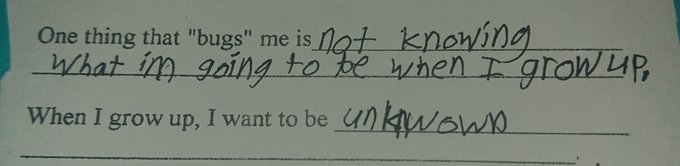 One thing that "bugs" me is not knowing
what im going to be when I grow up.
When I grow up, I want to be unknwown